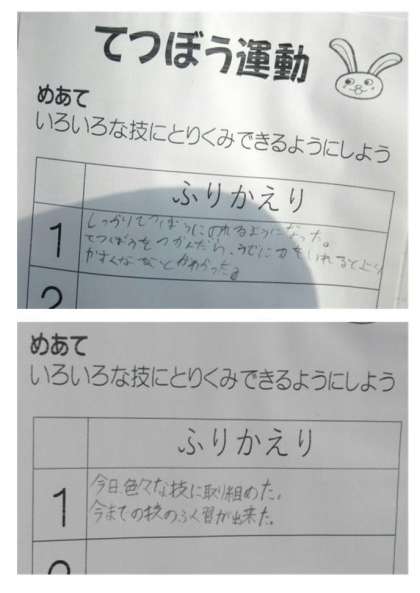 てつぼう運動
めあて
いろいろな技にとりくみできるようにしよう
ふりかえり
1
しっかりてつぼうにのれるようになった。
てつぼうをつかんだら、うでに力をいれると
かんたんな
2
めあて
いろいろな技にとりくみできるようにしよう
ふりかえり
1
今日、色々な技に取り組めた。
今までの技のふく習が出来た。